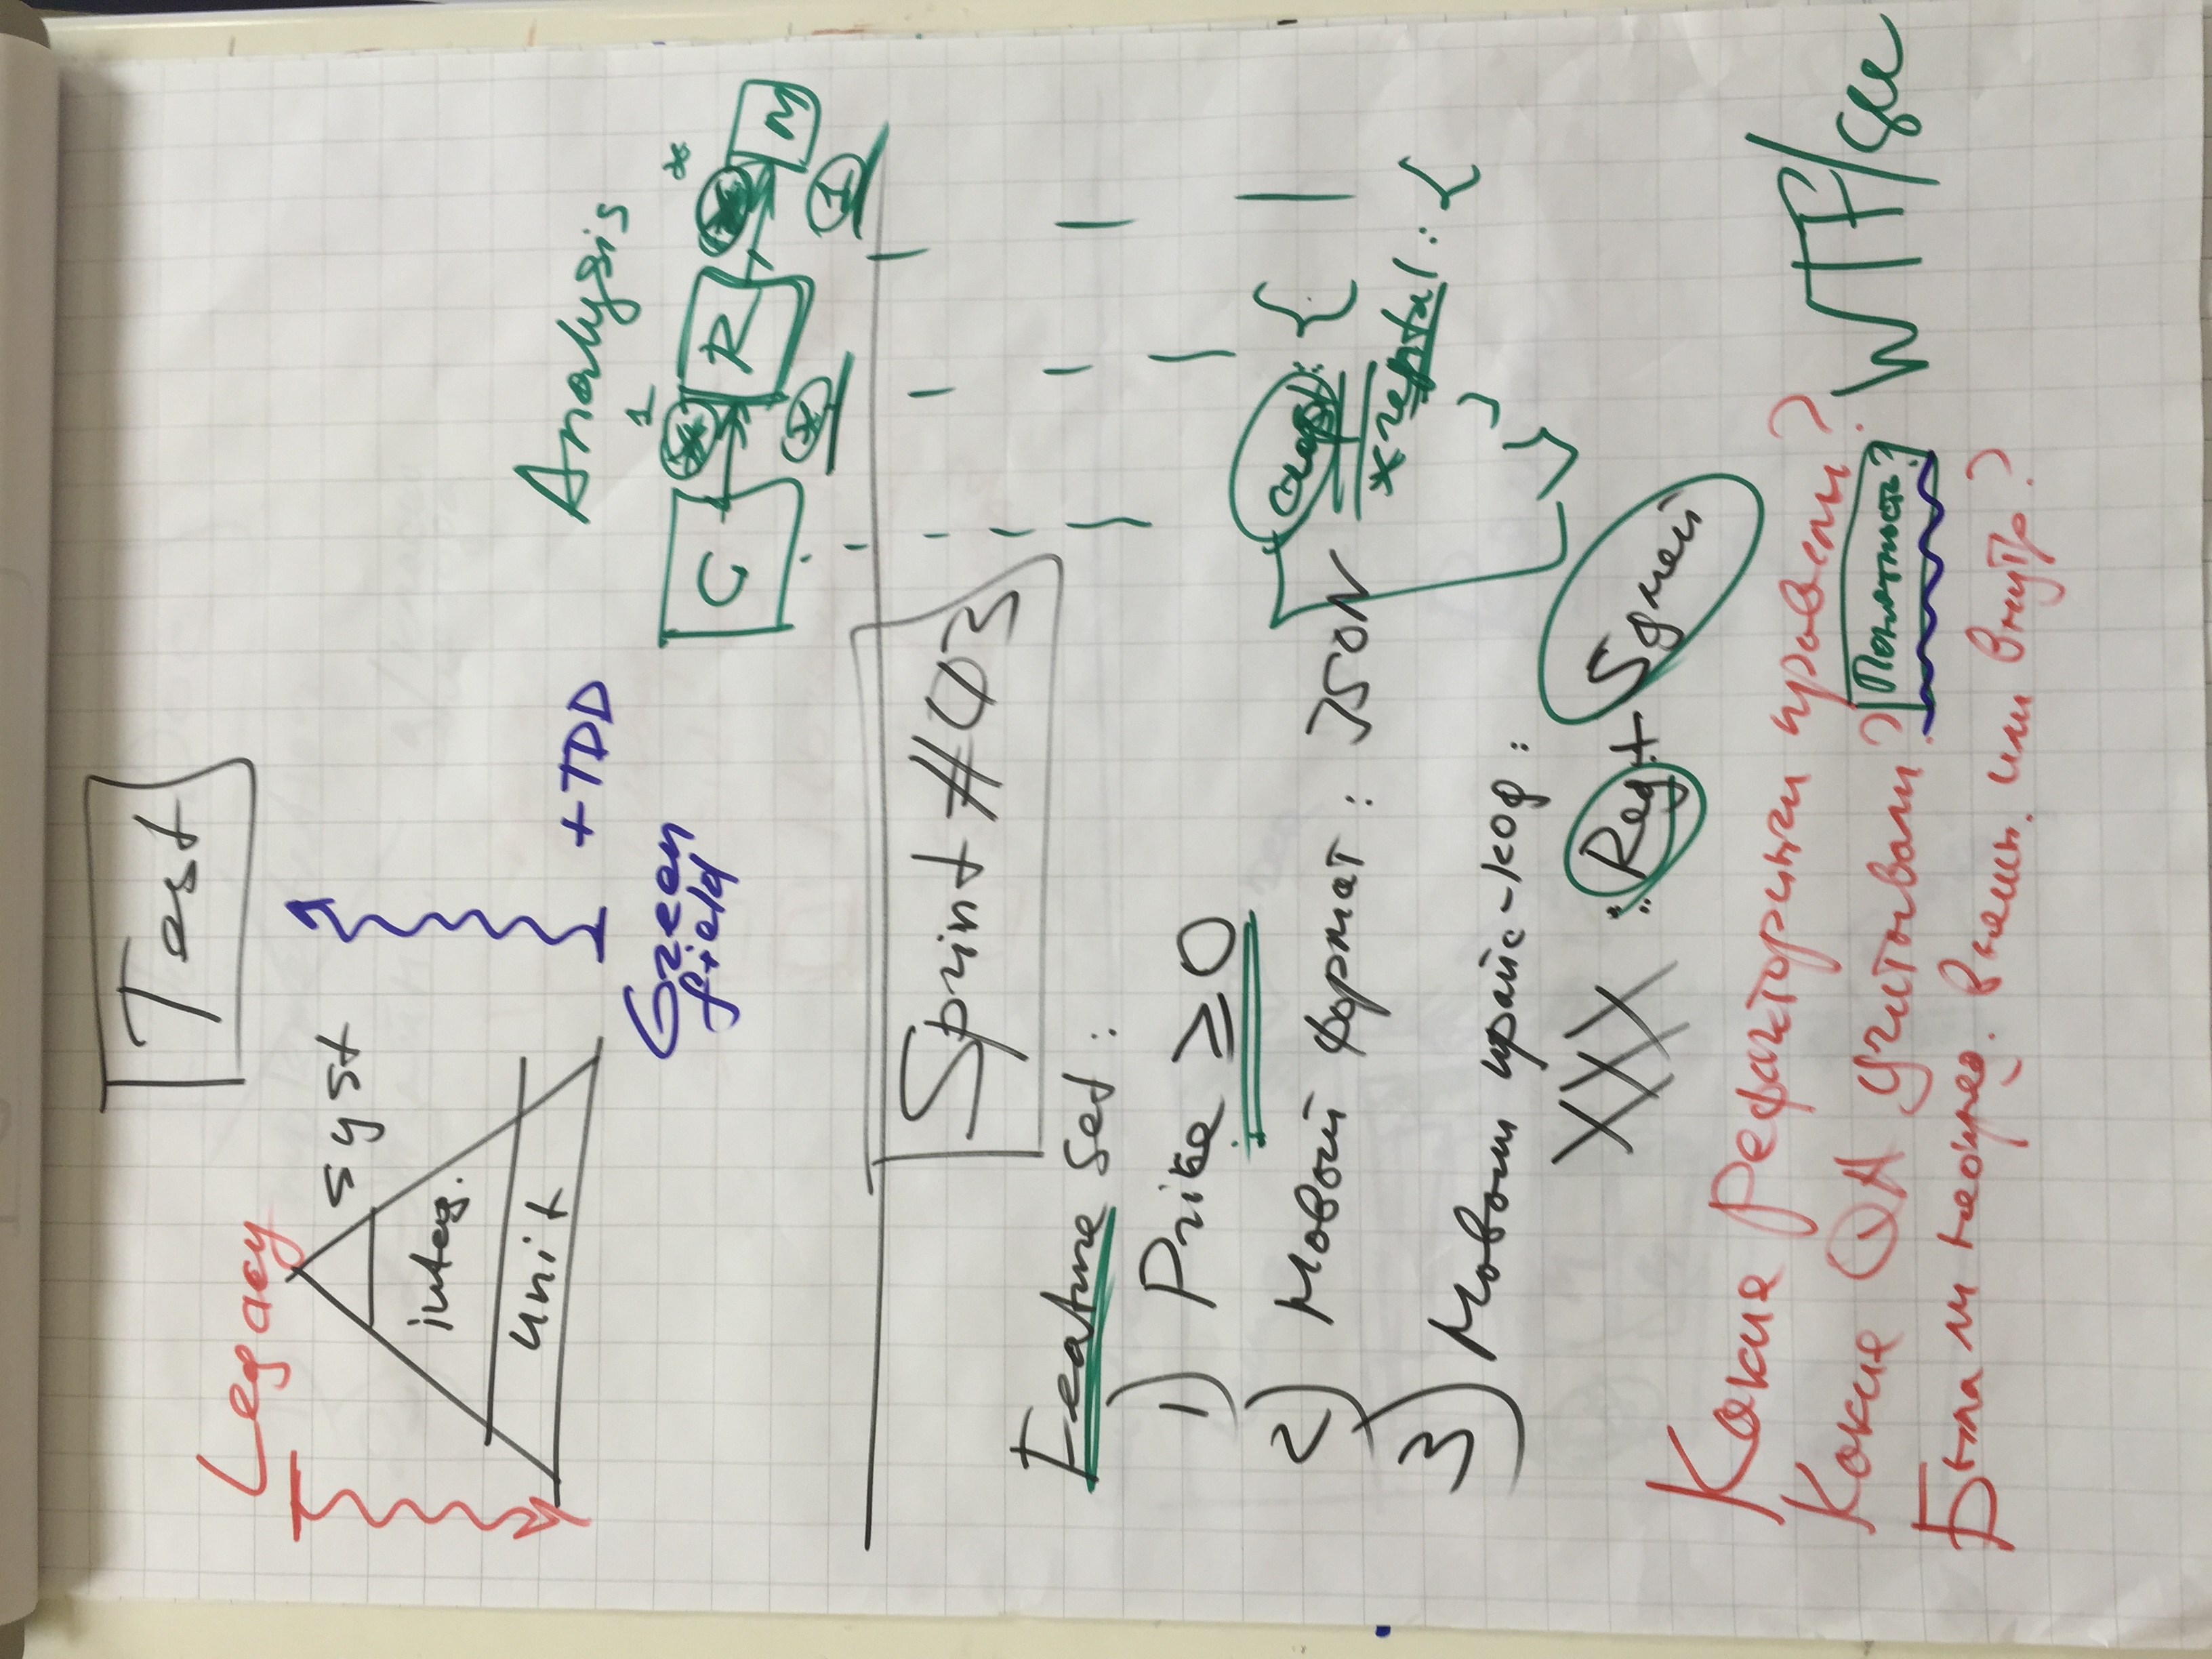 Test
Legacy
syst
integ.
unit
+ TDD
Green
field
Analysis
1
*
C
R
M
*
1
Sprint #03
Feature set:
1) Price ≥ 0
2) Новый формат: JSON
: {
* rental: {
}
3) Новый прайс-код:
XXX : Reg + 5 дней
Какие рефакторинги провели?
Какие QA учитывали?
Понятность?
WTF/sec
Была ли неопред. внешн. или внутр?